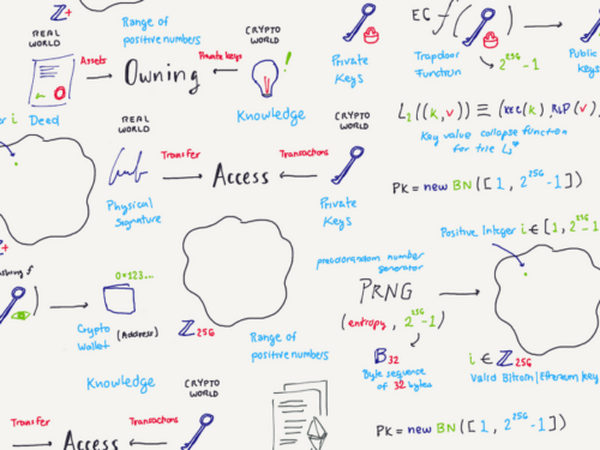 ℤ+
Range of
positive numbers
REAL
WORLD
CRYPTO
WORLD
Assets
Owning
Private keys
!
Deed
Knowledge
Private
Keys
EC f( )
Trapdoor
Function
2^256-1
Public
keys
L₂((k,v)) ≡ (KEC(k), RLP(v)
Key value collapse function
for trie L₂*
PK = new BN([1, 2^256-1])
er i
REAL
WORLD
CRYPTO
WORLD
Transfer
Access
Transactions
Physical
Signature
Private
Keys
Positive Integer i ∈ [1, 2^256-1
pseudorandom number
generator
PRNG
(entropy, 2^256-1)
B32
Byte sequence
of 32 bytes
i ∈ ℤ256
Valid Bitcoin/Ethereum key
ℤ+
ashing f
0x123...
Crypto
Wallet
(Address)
ℤ256
Range of
positive numbers
Knowledge
CRYPTO
WORLD
Transfer
Access
Transactions
PK = new BN([1, 2^256-1])